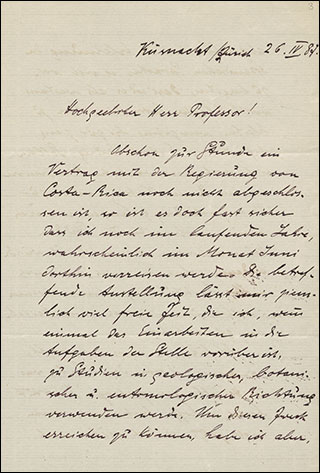 3
Küsnacht /Zürich 26. IV 89.
Hochgeehrter Herr Professor!
Obschon zur Stunde ein
Vertrag mit der Regierung von
Costa-Rica noch nicht abgeschlos-
sen ist, so ist es doch fast sicher
dass ich noch im laufenden Jahre,
wahrscheinlich im Monat Juni
dorthin verreisen werde. Die betref-
fende Anstellung lässt mir ziem-
lich viel freie Zeit, die ich, wenn
einmal das Einarbeiten in die
Aufgaben der Stelle vorüber ist,
zu Studien in zoologischer, botani-
scher u. entomologischer Richtung
verwenden werde. Um diesen Zweck
erreichen zu können, habe ich aber,